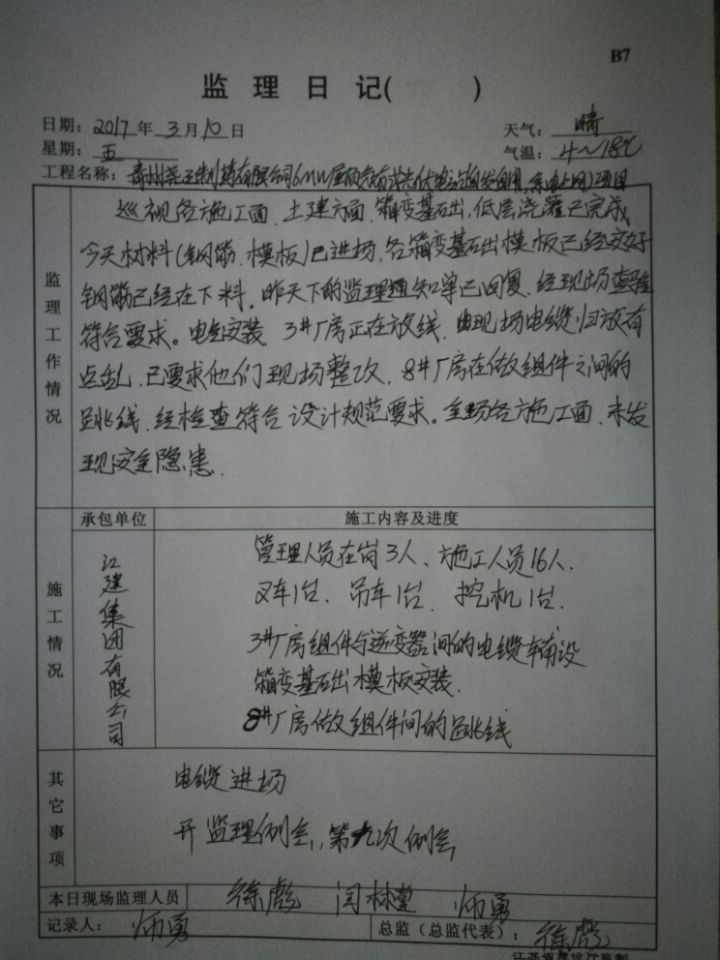 B7
监 理 日 记( )
日期: 2017 年 3 月 10 日 天气: 晴
星期: 五 气温: 4～18℃
工程名称: 青州尧王制药有限公司6MW屋顶分布式光伏电站
监理工作情况
巡视各施工面、土建方面、箱变基础出，低层浇灌已完成
今天材料(钢筋、模板)已进场，各箱变基础模板已经
钢筋已经在下料。昨天下的监理通知单已回复，经现场查验
符合要求。电气安装 3#厂房正在放线，现场电缆归放有
点乱，已要求他们现场整改，8#厂房在做组件之间的
跳线，经检查符合设计规范要求。全场各施工面，未发
现安全隐患.
承包单位 施工内容及进度
施工情况
江建集团有限公司
管理人员在岗3人、施工人员16人.
叉车1台、吊车1台、挖机1台.
3#厂房组件与逆变器间的电缆铺设
箱变基础模板安装.
8#厂房做组件间的跳线
其它事项
电缆进场
开监理例会，第九次例会
本日现场监理人员 徐彪 闫林堂 师勇
记录人: 师勇 总监（总监代表）: 徐彪